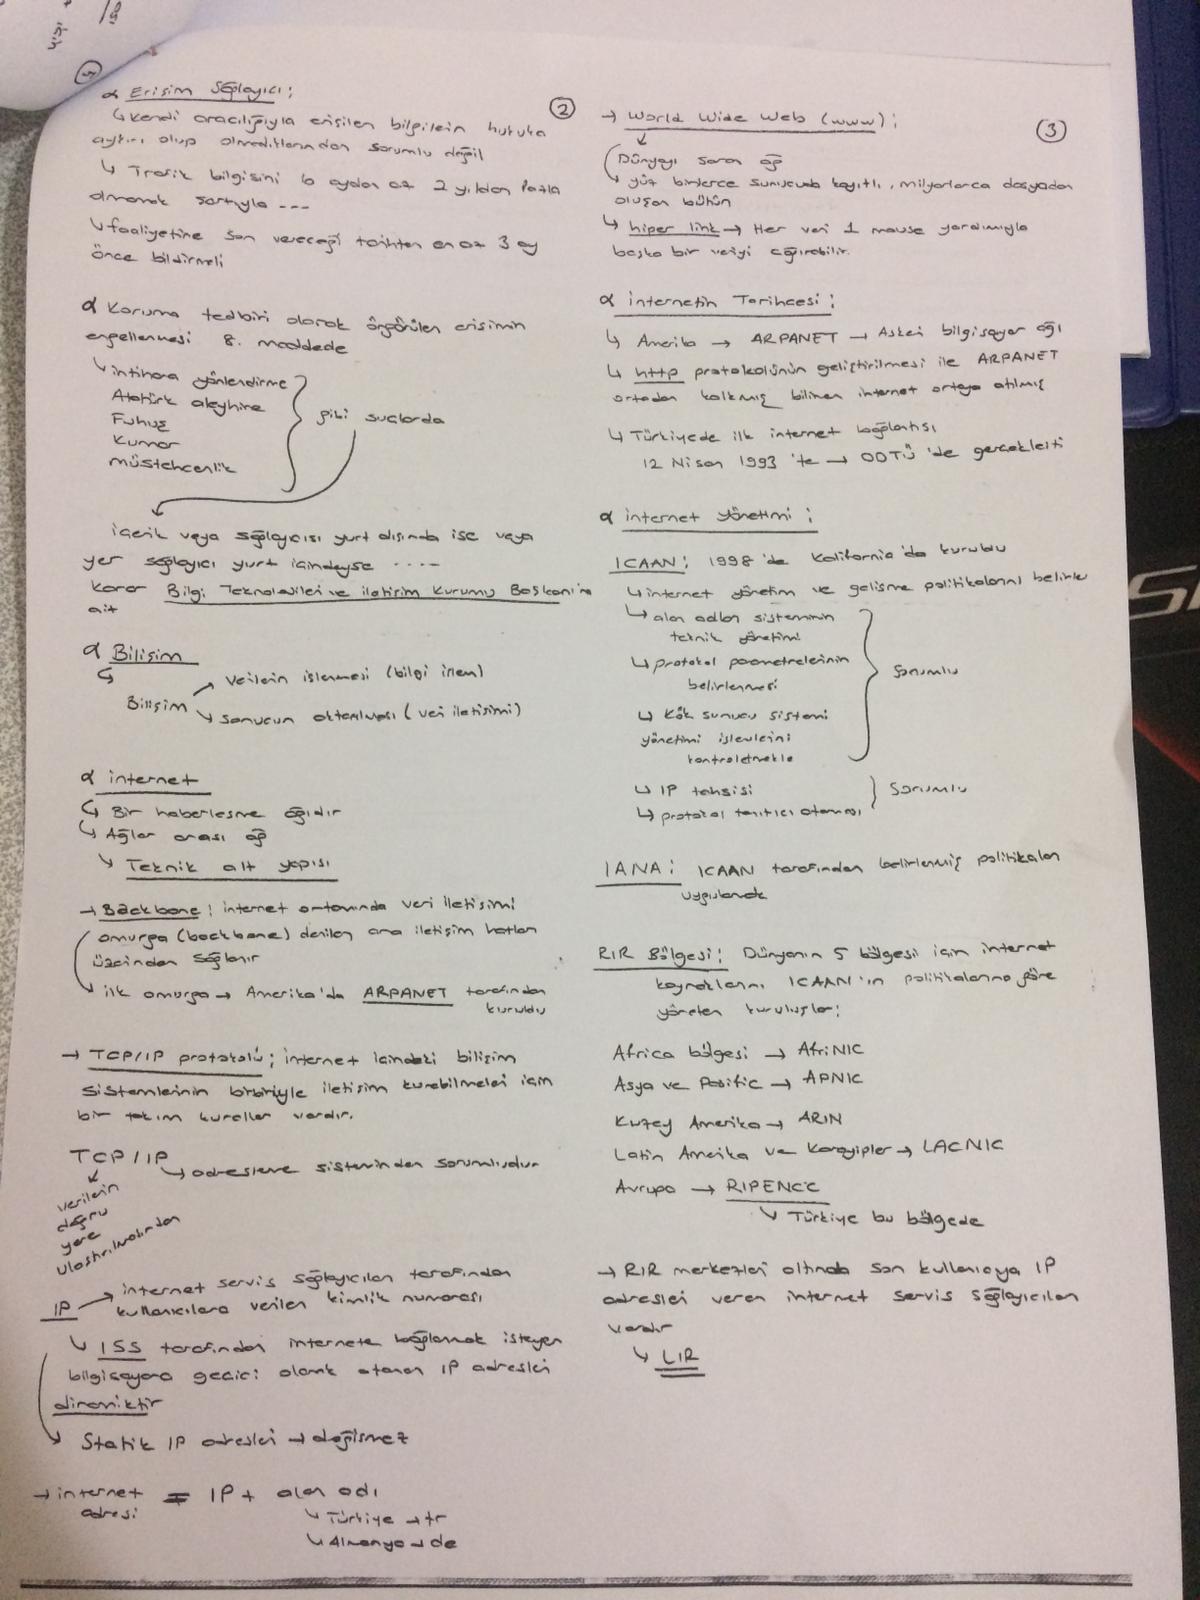 ② 
α Erişim Sağlayıcı;
↳ kendi aracılığıyla erişilen bilgilerin hukuka
aykırı olup olmadıklarından sorumlu değil
↳ Trafik bilgisini 6 aydan az 2 yıldan fazla
olmamak şartıyla ---
↳ faaliyetine son vereceği tarihten en az 3 ay
önce bildirmeli
α Koruma tedbiri olarak öngörülen erişimin
engellenmesi 8. maddede
↳ intihara yönlendirme
Atatürk aleyhine
Fuhuş
Kumar
müstehcenlik
gibi suçlarda
içerik veya sağlayıcısı yurt dışında ise veya
yer sağlayıcı yurt içindeyse ....
karar Bilgi Teknolojileri ve iletişim Kurumu Başkanı'na
ait
α Bilişim
Bilişim → verilerin işlenmesi (bilgi işlem)
↘ sonucun aktarılması (veri iletişimi)
α internet
↳ Bir haberleşme ağıdır
↳ Ağlar arası ağ
↳ Teknik alt yapısı
→ Backbone; internet ortamında veri iletişimi
omurga (backbone) denilen ana iletişim hatları
üzerinden sağlanır
↳ ilk omurga → Amerika'da ARPANET tarafından
kuruldu
→ TCP/IP protokolü; internet içindeki bilişim
sistemlerinin birbiriyle iletişim kurabilmeleri için
bir takım kurallar vardır.
TCP/IP
↳ adresleme sisteminden sorumludur
verilerin
doğru
yere
ulaştırılmasından
IP → internet servis sağlayıcıları tarafından
kullanıcılara verilen kimlik numarası
↳ ISS tarafından internete bağlanmak isteyen
bilgisayara geçici olarak atanan IP adresleri
dinamiktir
↳ Statik IP adresleri → değişmez
→ internet adresi = IP + alan adı
↳ Türkiye → tr
↳ Almanya → de
③
→ World Wide Web (www);
Dünyayı saran ağ
↳ yüz binlerce sunucuda kayıtlı, milyonlarca dosyadan
oluşan bütün
↳ hiper link → Her veri 1 mouse yardımıyla
başka bir veriyi çağırabilir.
α internetin Tarihçesi;
↳ Amerika → ARPANET → Askeri bilgisayar ağı
↳ http protokolünün geliştirilmesi ile ARPANET
ortadan kalkmış bilinen internet ortaya atılmış
↳ Türkiyede ilk internet bağlantısı
12 Nisan 1993 'te → ODTÜ 'de gerçekleşti
α internet yönetimi;
ICAAN; 1998 'de Kaliforniya'da kuruldu
↳ internet yönetim ve gelişme politikalarını belirler
↳ alan adları sisteminin
teknik yönetimi
↳ protokol parametrelerinin
belirlenmesi
↳ Kök sunucu sistemi
yönetimi işlevlerini
kontroletmekle
sorumlu
↳ IP tahsisi
↳ protokol tanıtıcı ataması
sorumlu
IANA; ICAAN tarafından belirlenmiş politikaları
uygulamak
RIR Bölgesi; Dünyanın 5 bölgesi için internet
kaynaklarını ICAAN'ın politikalarına göre
yöneten kuruluşlar;
Africa bölgesi → AfriNIC
Asya ve Pasific → APNIC
Kuzey Amerika → ARIN
Latin Amerika ve Karayipler → LACNIC
Avrupa → RIPENCC
↳ Türkiye bu bölgede
→ RIR merkezleri altında son kullanıcıya IP
adresleri veren internet servis sağlayıcıları
vardır
↳ LIR